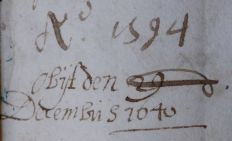 A° 1594
obijt den 29
Decembris 1640